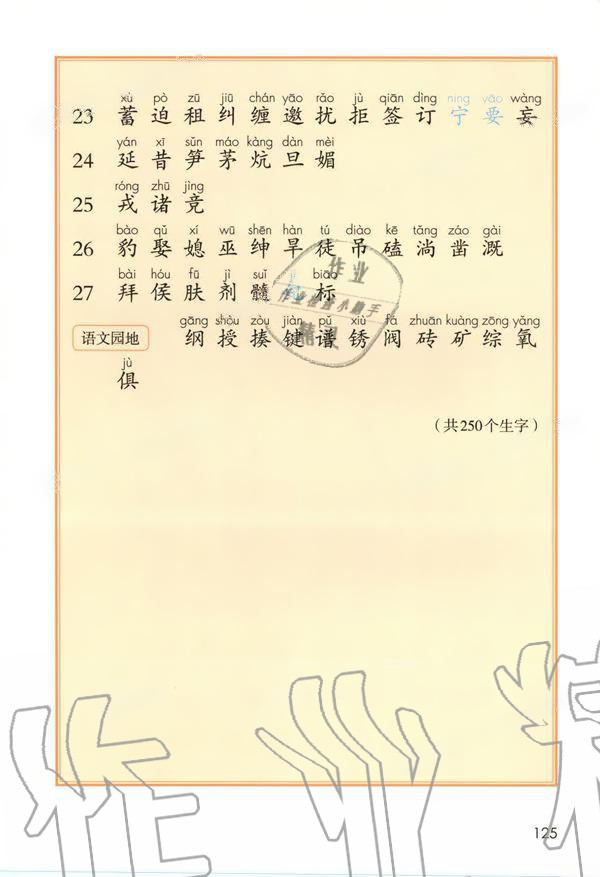 xù pò zū jiū chán yāo rǎo jù qiān dìng nìng yāo wàng
23 蓄 迫 租 纠 缠 邀 扰 拒 签 订 宁 要 妄
yán xī sǔn máo kàng dàn mèi
24 延 昔 笋 茅 炕 旦 媚
róng zhū jìng
25 戎 诸 竞
bào qǔ xí wū shēn hàn tú diào kē tǎng záo gài
26 豹 娶 媳 巫 绅 旱 徒 吊 磕 淌 凿 溉
bài hóu fū jì suǐ biāo
27 拜 侯 肤 剂 髓 标
gāng shòu zòu jiàn pǔ xiù fá zhuān kuàng zōng yǎng
语文园地 纲 授 揍 键 谱 锈 阀 砖 矿 综 氧
jù
俱
（共250个生字）
作业
125